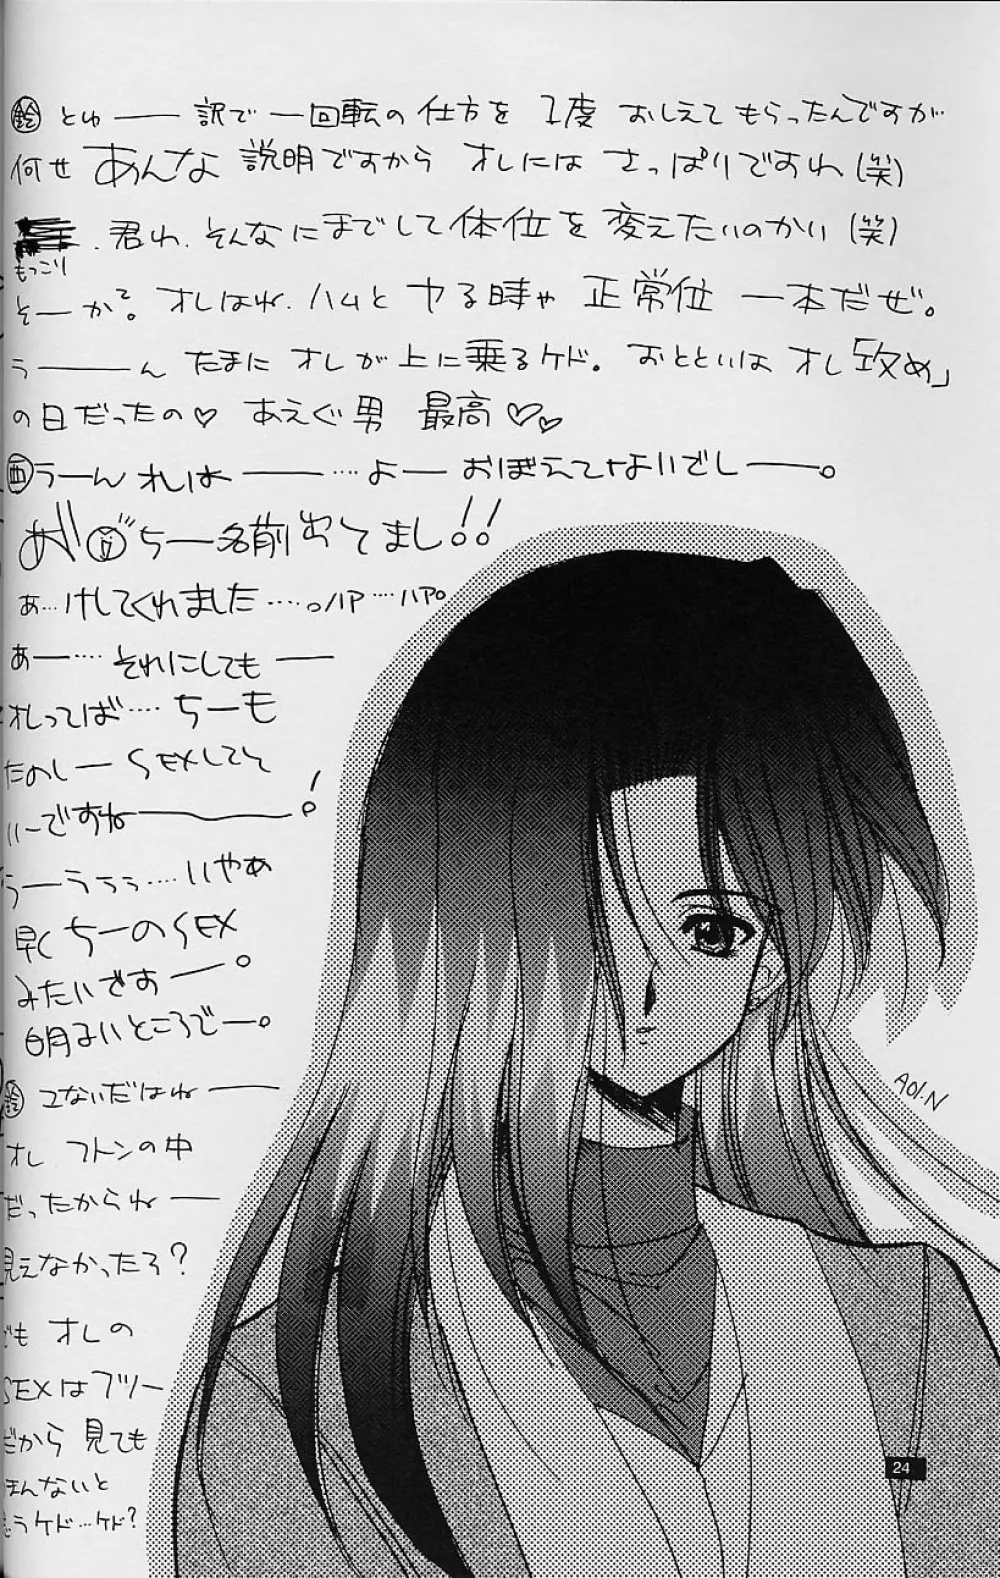 鈴 とゆーー訳で一回転の仕方を1度おしえてもらったんですが…
何せあんな説明ですからオレにはさっぱりですわ(笑)
君わ、そんなにまでして体位を変えたいのかい(笑)
もっこり
そーか?。オレはね、ハムとヤる時ゃ正常位一本だぜ。
うーーーん たまにオレが上に乗るケド。おとといはオレ「攻め」
の日だったの♡ あえぐ男 最高♡♡
西 うーん オレはーーー…よーー おぼえてないでしーーー。
ちー名前出てまし!!
あ…けしてくれました……。ハァ…ハァ。
あーー…それにしてもーー
オレってば…ちーも
たのしーーSEXしてそ
いーですねーーーー!
うーううう…いやあ
早くちーのSEX
みたいですおーー。
明るいところでー。
鈴 こないだはねーーー
オレ フトンの中
だったからねーー
見えなかったろ?
でも オレの
SEXはフツー
だから 見ても
まんないと
もうケド…ケド?
AOI.N
24